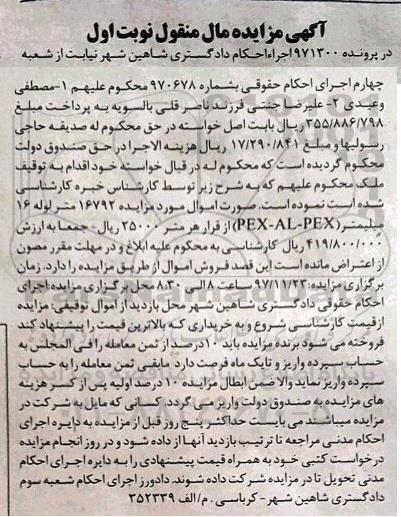 آگهی مزایده مال منقول نوبت اول
در پرونده ۹۷۱۳۰۰ اجراءاحکام دادگستری شاهین شهر نیابت از شعبه
چهارم اجرای احکام حقوقی بشماره ۹۷۰۶۷۸ محکوم علیهم ۱-مصطفی
وعیدی ۲- علیرضا جنتی فرزند ناصر قلی بالسویه به پرداخت مبلغ
۳۵۵/۸۸۶/۷۹۸ ریال بابت اصل خواسته در حق محکوم له صدیقه حاجی
رسولیها و مبلغ ۱۷/۲۹۰/۸۴۱ ریال هزینه الاجرا در حق صندوق دولت
محکوم گردیده است که محکوم له در قبال خواسته خود اقدام به توقیف
ملک محکوم علیهم که به شرح زیر توسط کارشناس خبره کارشناسی
شده است نموده است. صورت اموال مورد مزایده ۱۶۷۹۲ متر لوله ۱۶
میلیمتر (PEX-AL-PEX) از قرار هر متر ۲۵۰۰۰ ریال- جمعا به ارزش
۴۱۹/۸۰۰/۰۰۰ ریال کارشناسی به محکوم علیه ابلاغ و در مهلت مقرر مصون
از اعتراض مانده است این قصد فروش اموال از طریق مزایده را دارد. زمان
برگزاری مزایده: ۹۷/۱۱/۲۳ ساعت ۸ الی ۸.۳۰ محل برگزاری مزایده:اجرای
احکام حقوقی دادگستری شاهین شهر محل بازدید از اموال توقیفی: مزایده
ازقیمت کارشناسی شروع و به خریداری که بالاترین قیمت را پیشنهاد کند
فروخته می شود برنده مزایده باید ۱۰درصد از ثمن معامله را فی المجلس به
حساب سپرده واریز و تا یک ماه فرصت دارد مابقی ثمن معامله را به حساب
سپرده واریز نماید والا ضمن ابطال مزایده ۱۰ درصد اولیه پس از کسر هزینه
های مزایده به صندوق دولت واریز می گردد. کسانی که مایل به شرکت در
مزایده میباشند می بایست حداکثر پنج روز قبل از مزایده به دایره اجرای
احکام مدنی مراجعه تا ترتیب بازدید آنها از داده شود و در روز انجام مزایده
درخواست کتبی خود به همراه قیمت پیشنهادی را به دایره اجرای احکام
مدنی تحویل تا در مزایده شرکت داده شوند. دادورز اجرای احکام شعبه سوم
دادگستری شاهین شهر - کرباسی . م/الف ۳۵۲۳۳۹